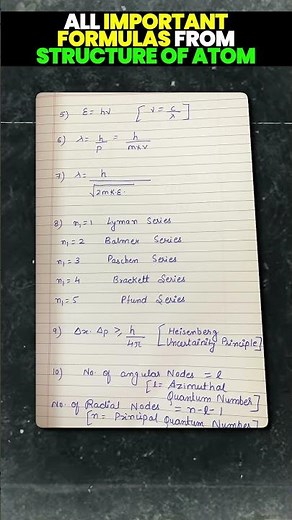 ALL IMPORTANT
FORMULAS FROM
STRUCTURE OF ATOM
5) E = hν [ν = c/λ]
6) λ = h/p = h/m×v
7) λ = h/√2mK.E.
8) n₁ = 1 Lyman Series
n₁ = 2 Balmer Series
n₁ = 3 Paschen Series
n₁ = 4 Brackett Series
n₁ = 5 Pfund Series
9) Δx. Δp ≥ h/4π [Heisenberg
Uncertainity Principle]
10) No. of angular Nodes = l
[l = Azimuthal
Quantum Number]
No. of Radial Nodes = n-l-1
[n = Principal Quantum Number]